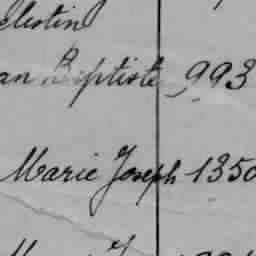 elestin
an Baptiste 993
Marie Joseph 1350